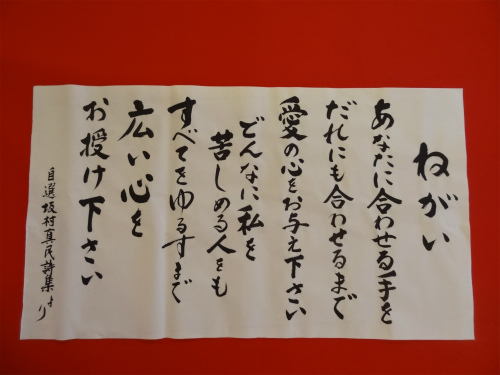 ねがい
あなたに合わせる手を
だれにも合わせるまで
愛の心をお与え下さい
どんなに私を
苦しめる人をも
すべてをゆるすまで
広い心を
お授け下さい
自選坂村真民詩集より